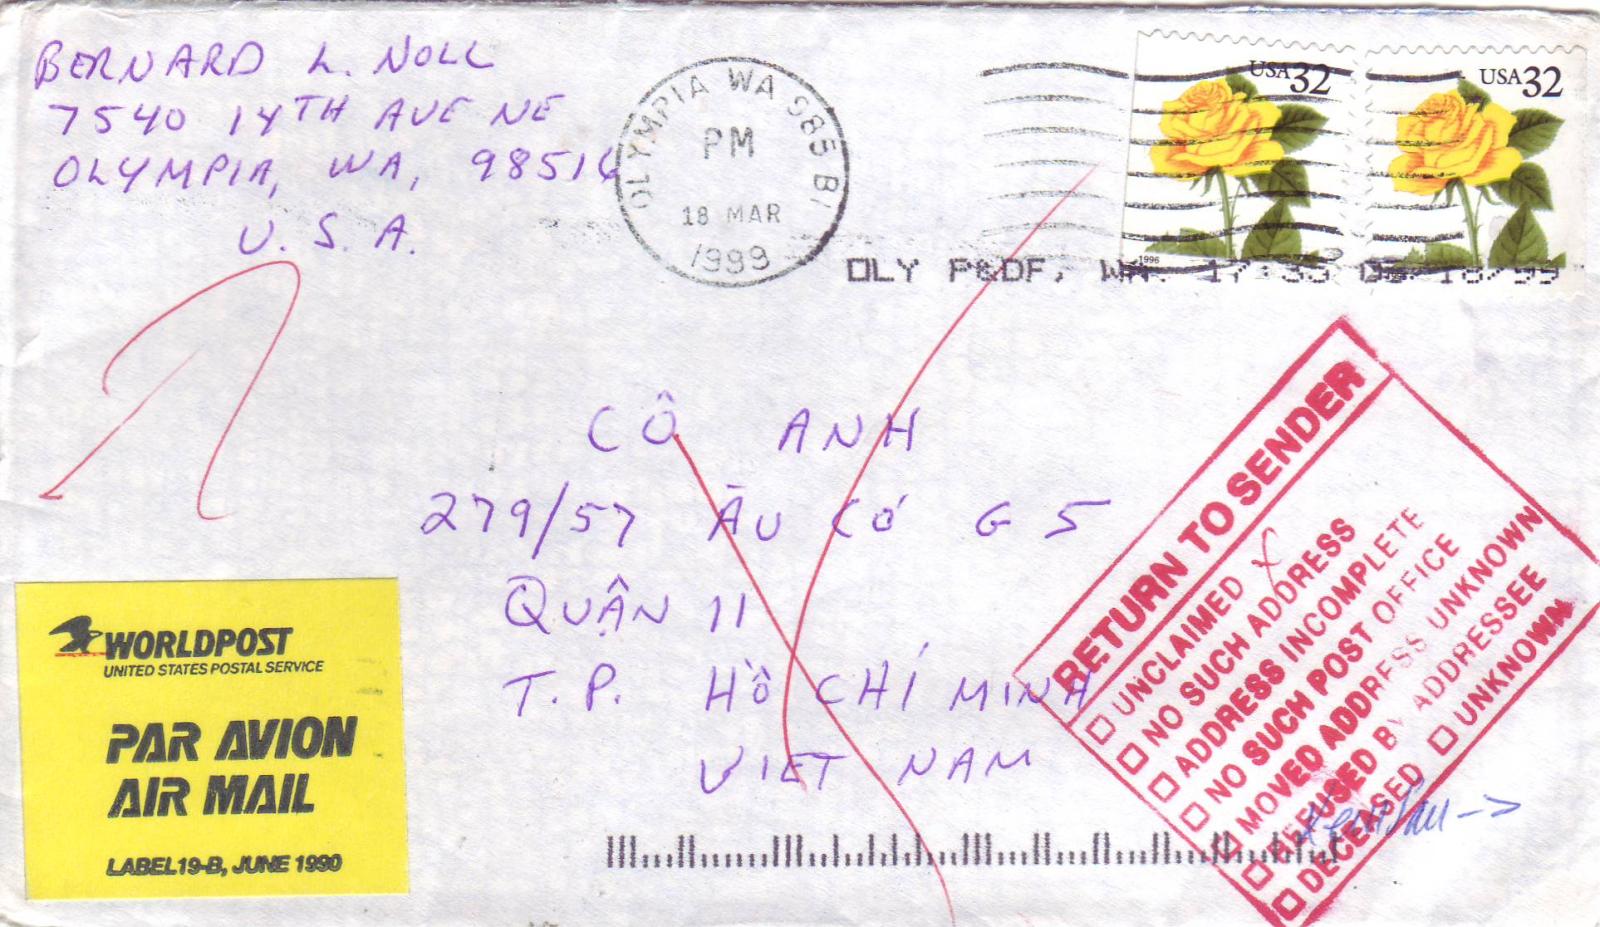 BERNARD L. NOLL
7540 14TH AVE NE
OLYMPIA, WA, 98516
U. S. A.
OLYMPIA WA 985 B1
PM
18 MAR
1999
USA 32
USA 32
1996
OLY P&DF, WA
CÔ ANH
279/57 ÂU CÓ G 5
QUẬN 11
T.P. HỒ CHÍ MINH
VIET NAM
WORLDPOST
UNITED STATES POSTAL SERVICE
PAR AVION
AIR MAIL
LABEL 19-B, JUNE 1990
RETURN TO SENDER
UNCLAIMED X
NO SUCH ADDRESS
ADDRESS INCOMPLETE
NO SUCH POST OFFICE
MOVED ADDRESS UNKNOWN
REFUSED BY ADDRESSEE
DECEASED UNKNOWN